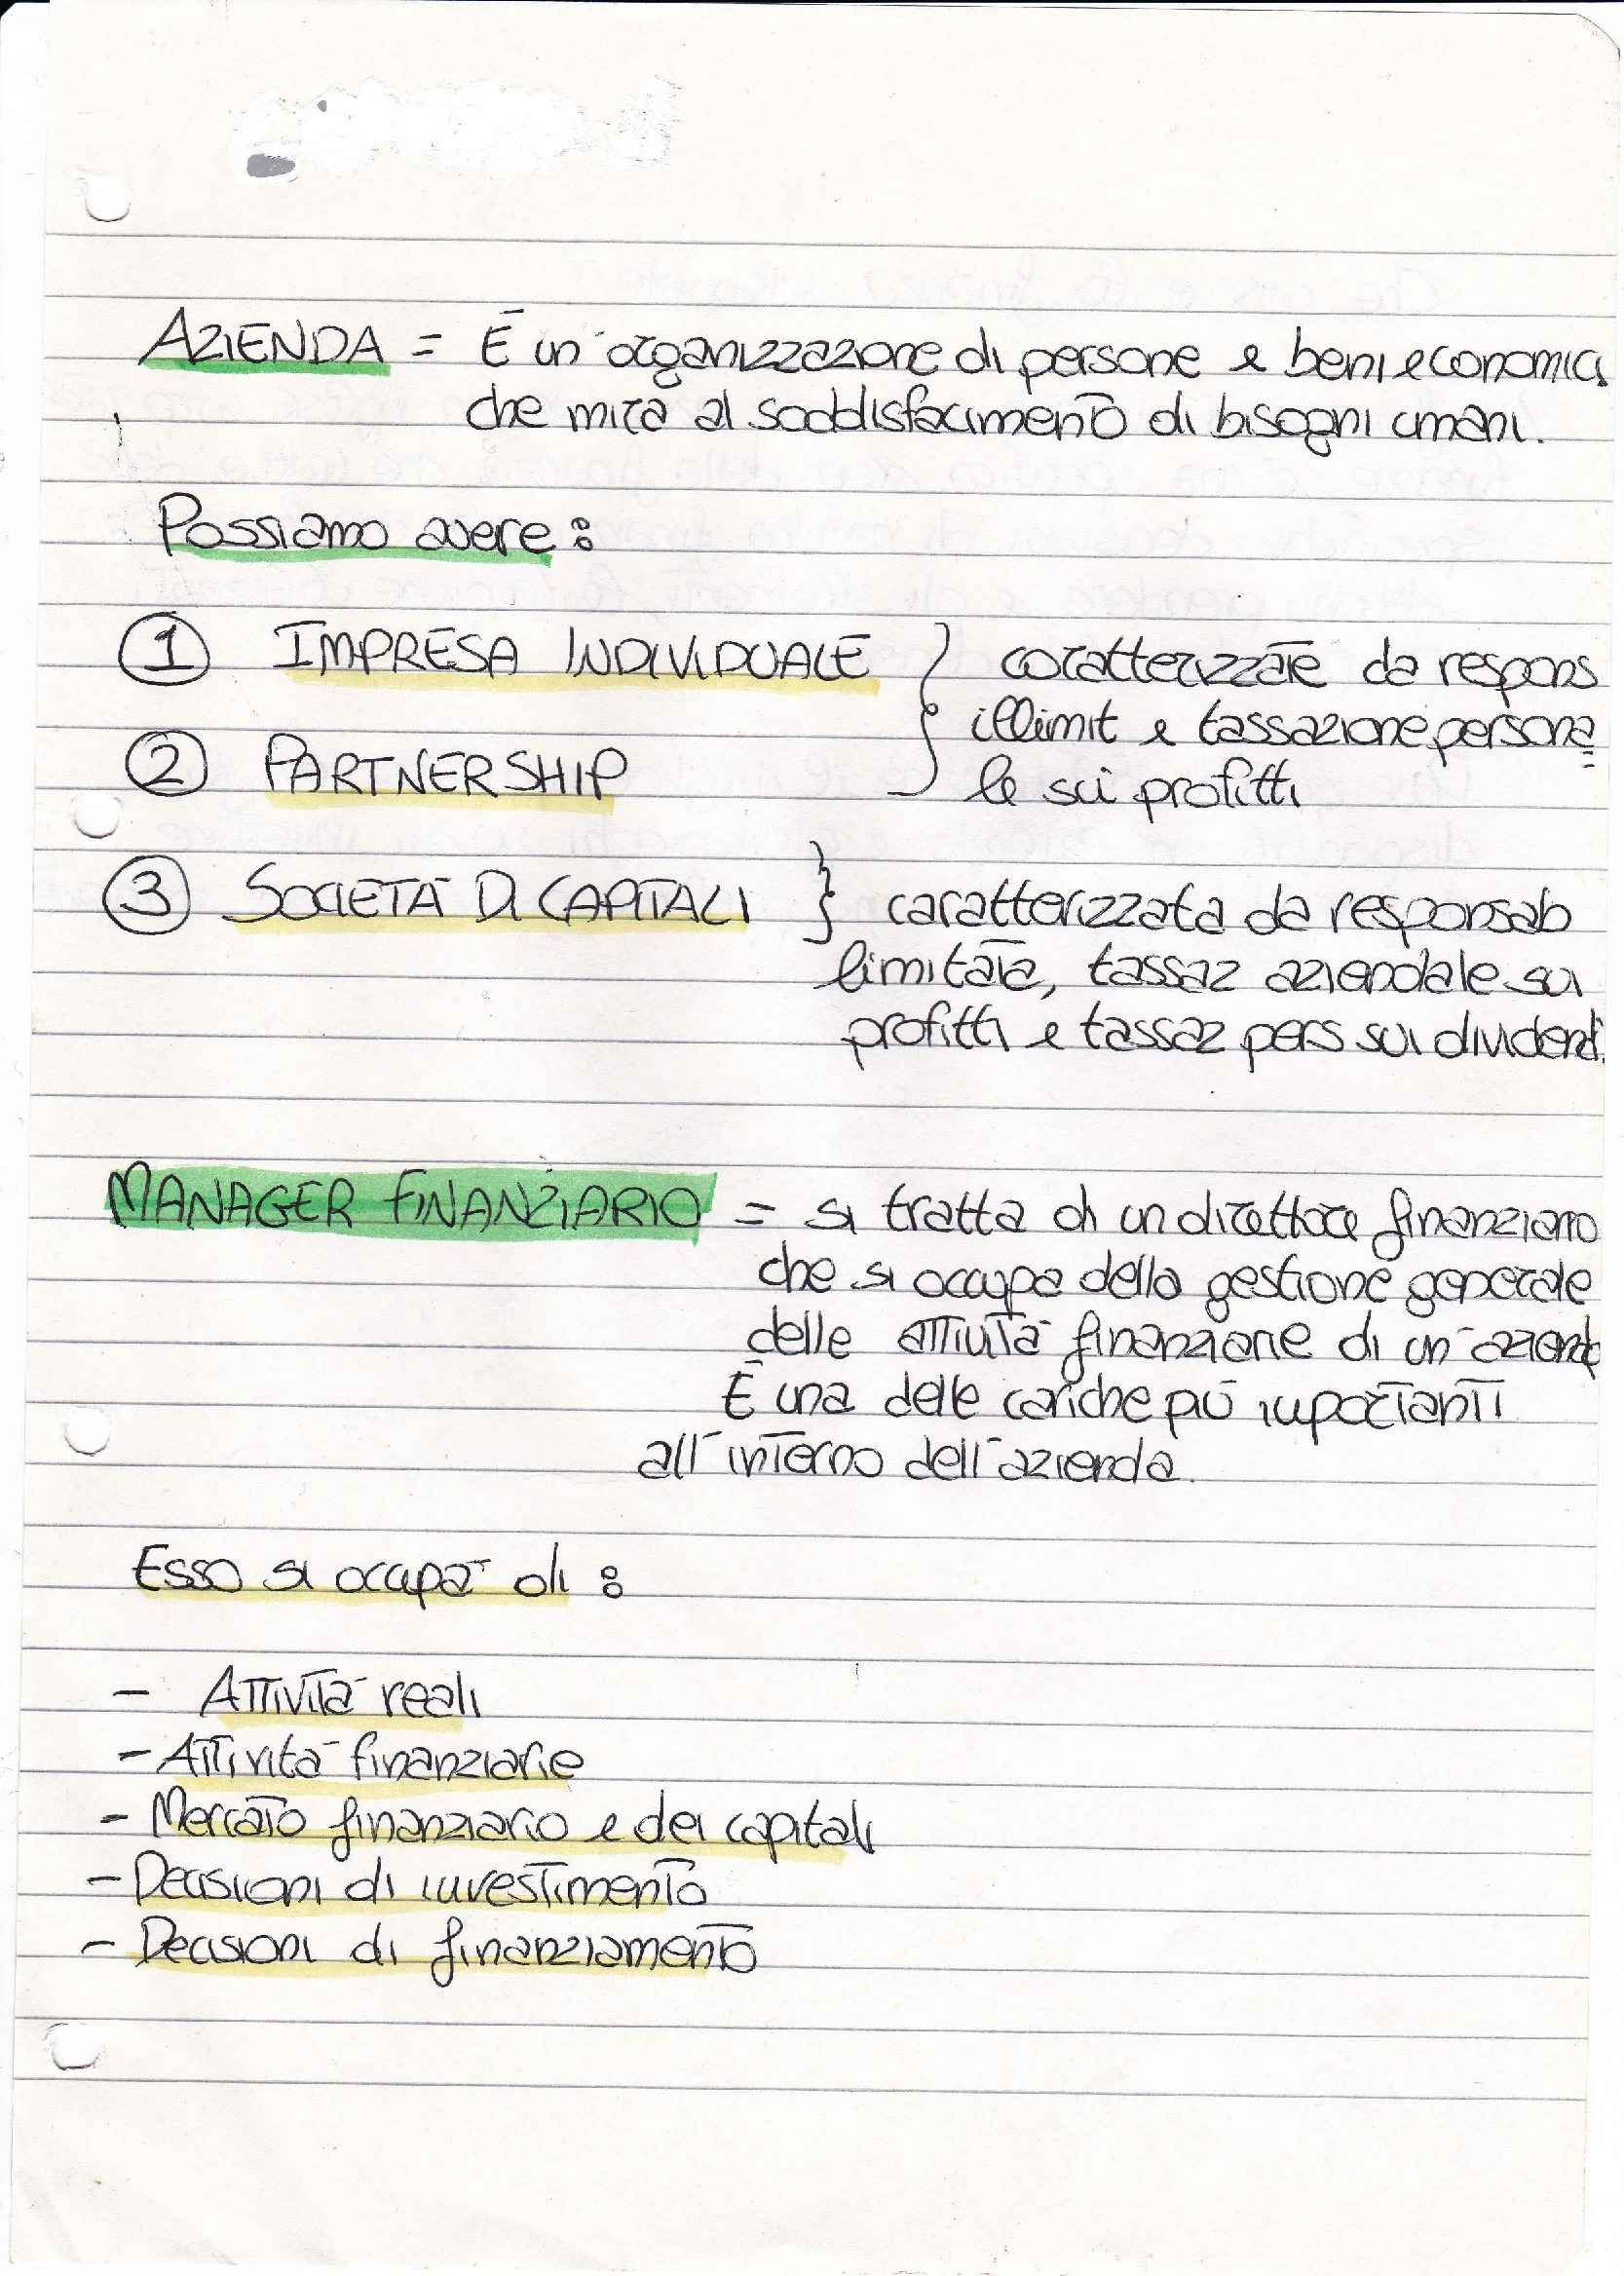 AZIENDA = È un'organizzazione di persone e beni economici
che mira al soddisfacimento di bisogni umani.
Possiamo avere:
① IMPRESA INDIVIDUALE } caratterizzate da respons
illimit e tassazione persona=
② PARTNERSHIP le sui profitti
③ SOCIETÀ DI CAPITALI } caratterizzata da responsab
limitata, tassaz aziendale sui
profitti e tassaz pers sui dividendi.
MANAGER FINANZIARIO = si tratta di un direttore finanziario
che si occupa della gestione generale
delle attività finanziarie di un'azienda
È una delle cariche più importanti
all'interno dell'azienda.
Esso si occupa di:
- Attività reali
- Attività finanziarie
- Mercato finanziario e dei capitali
- Decisioni di investimento
- Decisioni di finanziamento